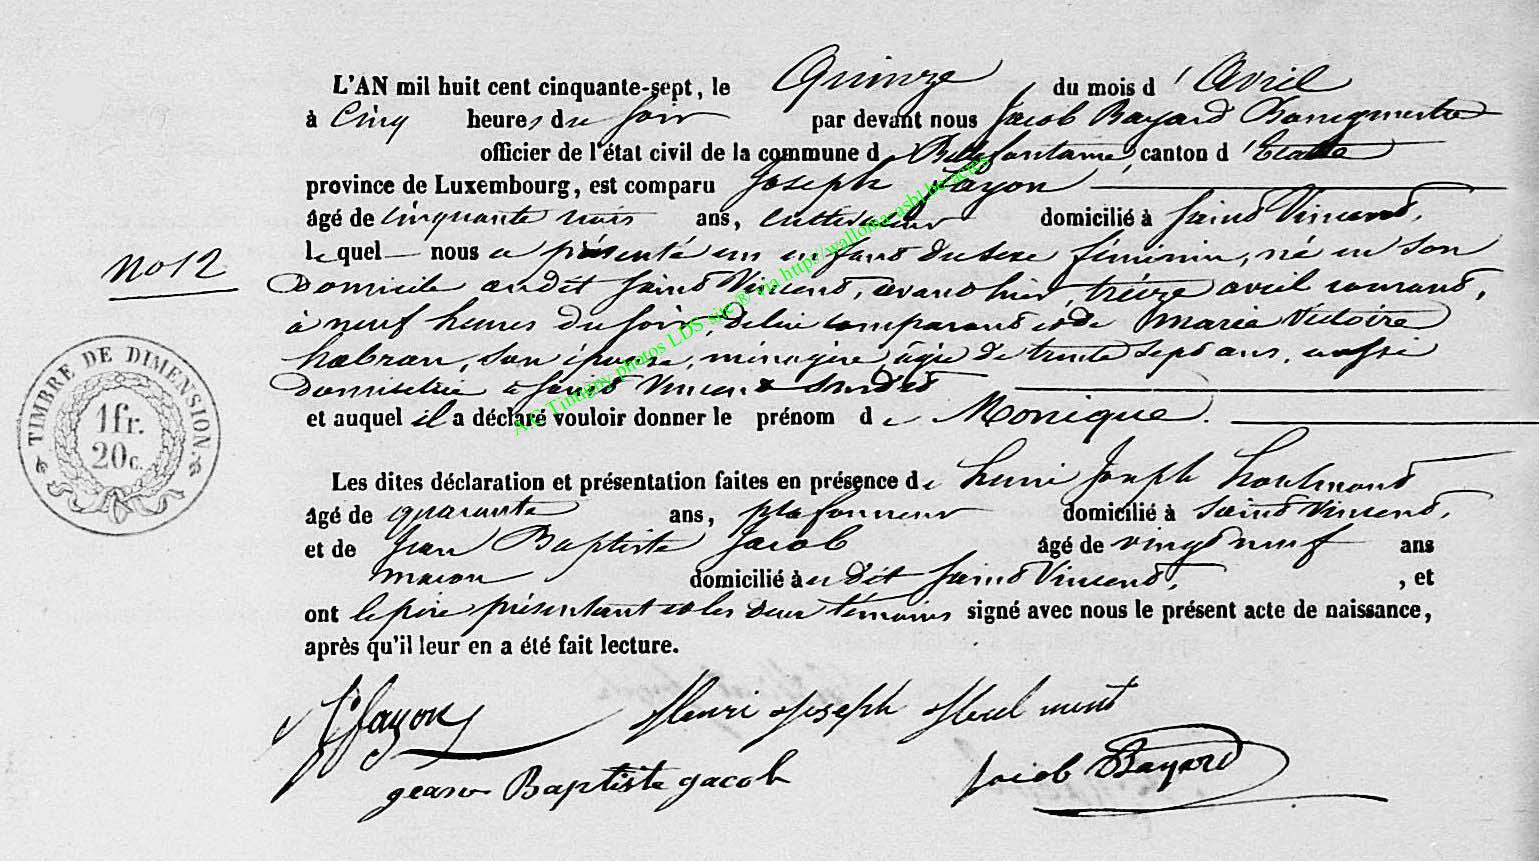 L'AN mil huit cent cinquante-sept, le Quinze du mois d'Avril
à Cinq heures du soir par devant nous Jacob Bayard Bourgmestre
officier de l'état civil de la commune d Bellefontaine, canton d'Etalle
province de Luxembourg, est comparu Joseph Fayon
âgé de cinquante trois ans, cultivateur domicilié à Saint Vincent,
lequel nous a présenté un enfant du sexe féminin, né en son
domicile audit Saint Vincent, avant hier, treize avril courant,
à neuf heures du soir, de lui comparant et de Marie Victoire
habran, son épouse, ménagère, âgée de trente sept ans, aussi
domiciliée à Saint Vincent susdit
et auquel il a déclaré vouloir donner le prénom de Monique.
No 12
TIMBRE DE DIMENSION.
1 fr.
20 c.
Les dites déclaration et présentation faites en présence de henri Joseph houlmont
âgé de quarante ans, plafonneur domicilié à Saint Vincent,
et de Jean Baptiste Jacob âgé de vingt neuf ans
macon domicilié audit Saint Vincent, , et
ont le père présentant et les deux témoins signé avec nous le présent acte de naissance,
après qu'il leur en a été fait lecture.
Jh fayon Henri Joseph Houlmont
gean Baptiste gacob Jacob Bayard
A.G Tintigny photos LDS site ® via http://wallonia-asbl.be/actes